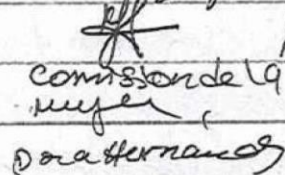 comision de la
mujer
Dora Hernandez